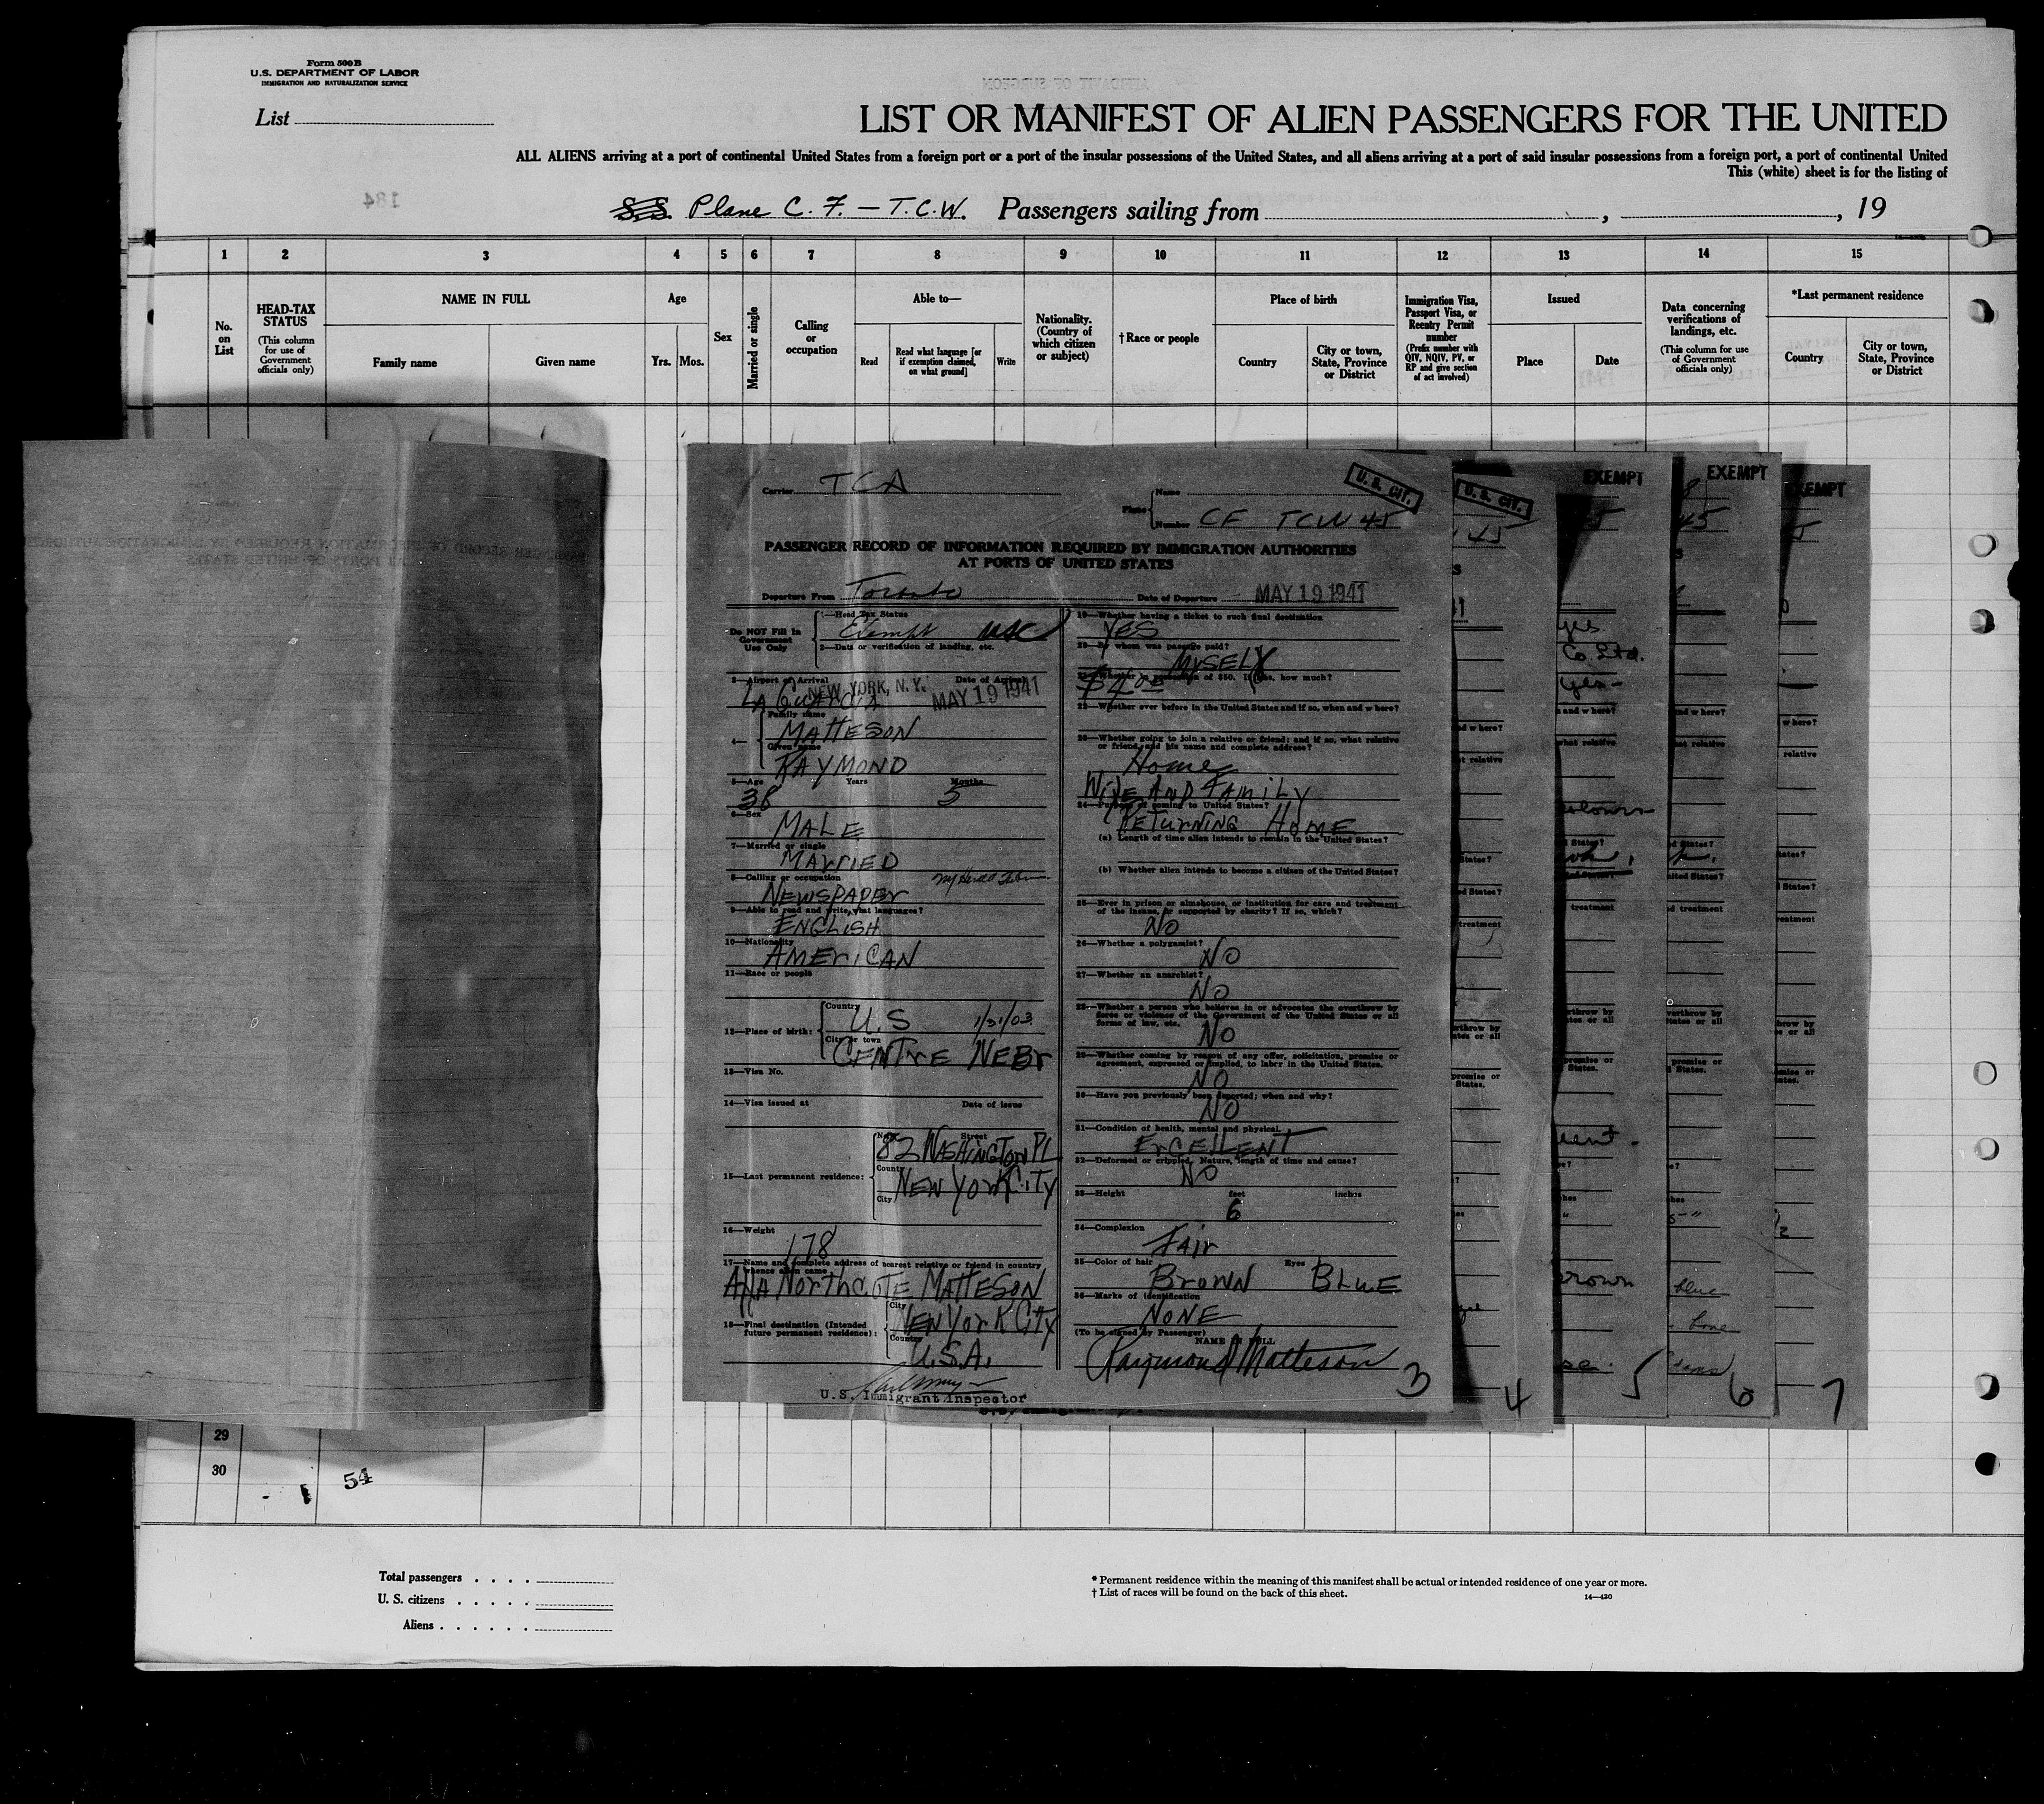 Form 500 B
U.S. DEPARTMENT OF LABOR
IMMIGRATION AND NATURALIZATION SERVICE
AFFIDAVIT OF SURGEON
List
LIST OR MANIFEST OF ALIEN PASSENGERS FOR THE UNITED
ALL ALIENS arriving at a port of continental United States from a foreign port or a port of the insular possessions of the United States, and all aliens arriving at a port of said insular possessions from a foreign port, a port of continental United
This (white) sheet is for the listing of
184
S.S. Plane C. F. — T.C.W. Passengers sailing from , , 19
1 2 3 4 5 6 7 8 9 10 11 12 13 14 15
No. on List
HEAD-TAX STATUS
(This column for use of Government officials only)
NAME IN FULL
Family name
Given name
Age
Yrs. Mos.
Sex
Married or single
Calling or occupation
Able to—
Read
Read what language [or if exemption claimed, on what ground]
Write
Nationality. (Country of which citizen or subject)
† Race or people
Place of birth
Country
City or town, State, Province or District
Immigration Visa, Passport Visa, or Reentry Permit number
(Prefix number with QIV, NQIV, PV, or RP and give section of act involved)
Issued
Place
Date
Data concerning verifications of landings, etc.
(This column for use of Government officials only)
*Last permanent residence
Country
City or town, State, Province or District
PASSENGER RECORD OF INFORMATION REQUIRED BY IMMIGRATION AUTHORITIES
AT PORTS OF UNITED STATES
Carrier TCA
Plane
Name
Number CF TCW 45
U. S. CIT.
PASSENGER RECORD OF INFORMATION REQUIRED BY IMMIGRATION AUTHORITIES
AT PORTS OF UNITED STATES
Departure From Toronto
Date of Departure MAY 19 1941
Do NOT Fill in
Government
Use Only
1—Head Tax Status
Exempt USC
2—Data or verification of landing, etc.
3—Airport of Arrival Date of Arrival
LA GUARDIA NEW YORK, N.Y. MAY 19 1941
4—
Family name
MATTESON
Given name
RAYMOND
5—Age Years Months
38 3
6—Sex
MALE
7—Married or single
MArriED
8—Calling or occupation
NEWSPAPEr
9—Able to read and write, what languages?
ENGLISH
10—Nationality
AMEriCAN
11—Race or people
12—Place of birth:
Country
U.S 1/31/03
City or town
CENTrE NEBr
13—Visa No.
14—Visa issued at Date of issue
15—Last permanent residence:
No. Street
82 WASHINGTON PL
County
NEW YOrK CiTY
City
16—Weight
178
17—Name and complete address of nearest relative or friend in country
whence alien came
NorthcOTE MATTESON
18—Final destination (Intended
future permanent residence):
City
NEW YorK CiTy
Country
U.S.A.
U.S. Immigrant Inspector
19—Whether having a ticket to such final destination
YES
20—By whom was passage paid?
MYSELF
21—Whether in possession of $50. If less, how much?
22—Whether ever before in the United States and if so, when and where?
23—Whether going to join a relative or friend; and if so, what relative
or friend, and his name and complete address?
Home
WiFE AND FAmiLY
24—Purpose of coming to United States?
RETurNING HOME
(a) Length of time alien intends to remain in the United States?
(b) Whether alien intends to become a citizen of the United States?
25—Ever in prison or almshouse, or institution for care and treatment
of the insane, or supported by charity? If so, which?
No
26—Whether a polygamist?
No
27—Whether an anarchist?
No
28—Whether a person who believes in or advocates the overthrow by
force or violence of the Government of the United States or all
forms of law, etc.
No
29—Whether coming by reason of any offer, solicitation, promise or
agreement, expressed or implied, to labor in the United States.
NO
30—Have you previously been deported; when and why?
NO
31—Condition of health, mental and physical.
ExCELLENT
32—Deformed or crippled. Nature, length of time and cause?
NO
33—Height feet inches
6
34—Complexion
FAir
35—Color of hair Eyes
BrOWN BLuE
36—Marks of identification
NONE
(To be signed by Passenger)
NAME IN FULL
Raymond Matteson
3
U. S. CIT.
45
4
EXEMPT
yes
Co. Ltd.
yes
5
EXEMPT
45
blue
6
EXEMPT
7
29
30
54
Total passengers
U. S. citizens
Aliens
* Permanent residence within the meaning of this manifest shall be actual or intended residence of one year or more.
† List of races will be found on the back of this sheet.
14—430